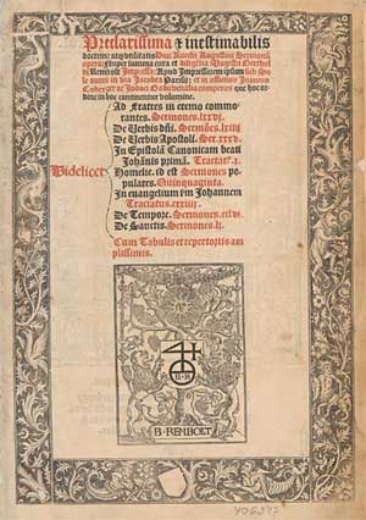 Preclarissima & inestimabilis
doctrine atq; vtilitatis Diui Aurelii Augustini Sermonũ
opera: Nuper summa cura et diligẽtia Magistri Berthol
di Rembolt Impressa: Apud Impressorem ipsum sub So
le aureo in via Jacobea Parisiis: et in officinis Joannis
ac Jodoci venalia comperies que hoc or
dine in hoc continentur volumine.
Ad Fratres in eremo commo-
rantes. Sermones. lxxvj.
De Verbis dñi. Sermões. lxiiij
De Verbis Apostoli. Ser. xxxv.
In Epistolã Canonicam beati
Johãnis primã. Tractat⁹. x.
Videlicet
Homelie. id est Sermones po-
pulares. Quinquaginta.
In euangelium Johannem
Tractatus. cxxiiij.
De Tempore. Sermones.
De Sanctis. Sermones. li.
Cum Tabulis et repertoriis am
plissimis.
B R
B · REMBOLT